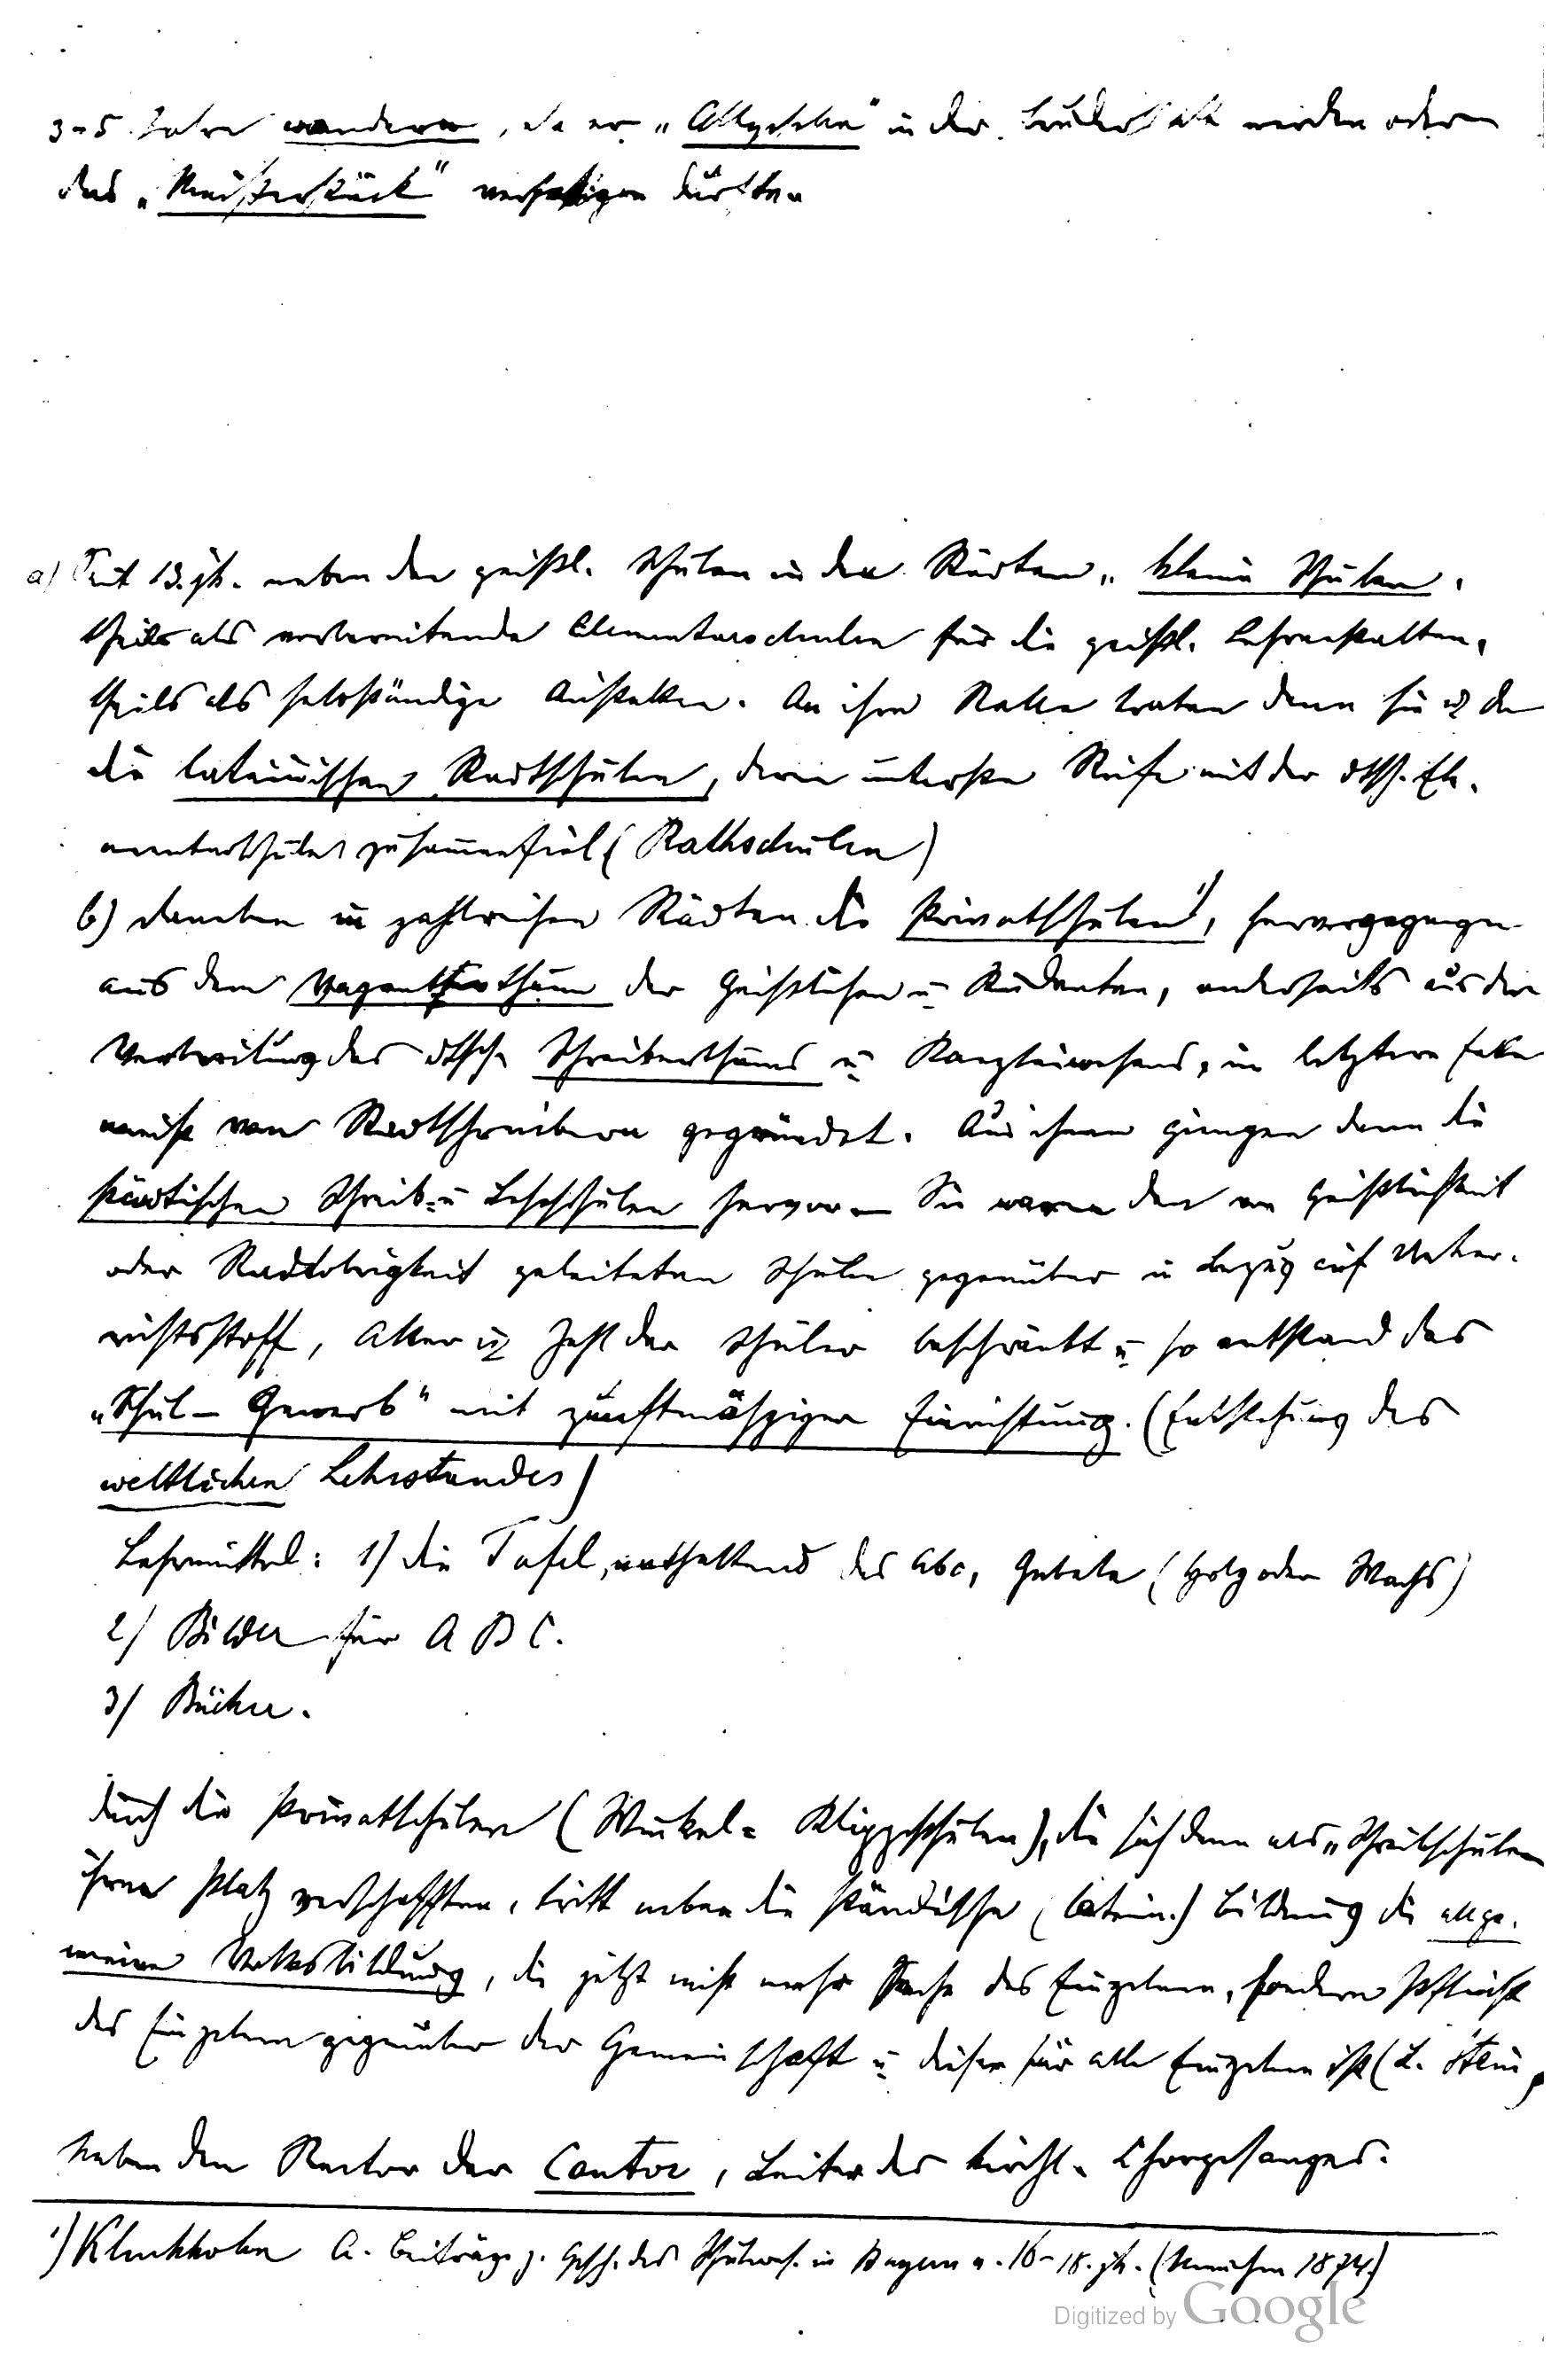 3-5 Jahre wandern, ehe er „Altgeselle" in der Bruderschaft werden oder
das „Meisterstück" verfertigen durfte.
a) Seit 13. jh. neben den geistl. Schulen in den Städten „kleine Schulen,
theils als vorbereitende Elementarschulen für die geistl. Lehranstalten,
theils als selbständige Anstalten. An ihre Stelle traten dann hie u da
die lateinischen Stadtschulen, deren unterste Stufe mit der dtsch. Ele-
mentarschule zusammenfiel (Rathschulen)
b) daneben in zahlreichen Städten die Privatschulen 1), hervorgegangen
aus dem Vagantenthum der Geistlichen u Studenten, anderseits aus der
Verbreitung des dtsch. Schreiberthums u Kanzleiwesens, in letzterem Falle
meist von Stadtschreibern gegründet. Aus ihnen giengen dann die
städtischen Schreib- u Leseschulen hervor – Sie waren den von Geistlichkeit
oder Stadtobrigkeit geleiteten Schulen gegenüber in Bezug auf Unter-
richtsstoff, Alter u Zahl der Schüler beschränkt u so entstand das
„Schul-Gewerb" mit zunftmäßiger Einrichtung. (Entstehung des
weltlichen Lehrstandes)
Lehrmittel: 1) die Tafel, enthaltend das Abc, Gebete (Holz oder Wachs)
2) Bilder für A B C.
3) Bücher.
durch die Privatschulen (Winkel- Klippschulen), die sich dann als „Schreibschulen
ihren Platz verschafften, tritt neben die ständische (latein.) Bildung die allge-
meine Volksbildung, die jetzt nicht mehr Sache des Einzelnen, sondern Pflicht
des Einzelnen gegenüber der Gemeinschaft u dieser für alle Einzelnen ist (L. Stein,
Neben dem Rector der Cantor, Leiter des kirchl. Chorgesanges.
1) Kluckhohn A. Beiträge z. Gesch. des Schulwes. in Bayern v. 16-18. jh. (München 1874.)
Digitized by Google